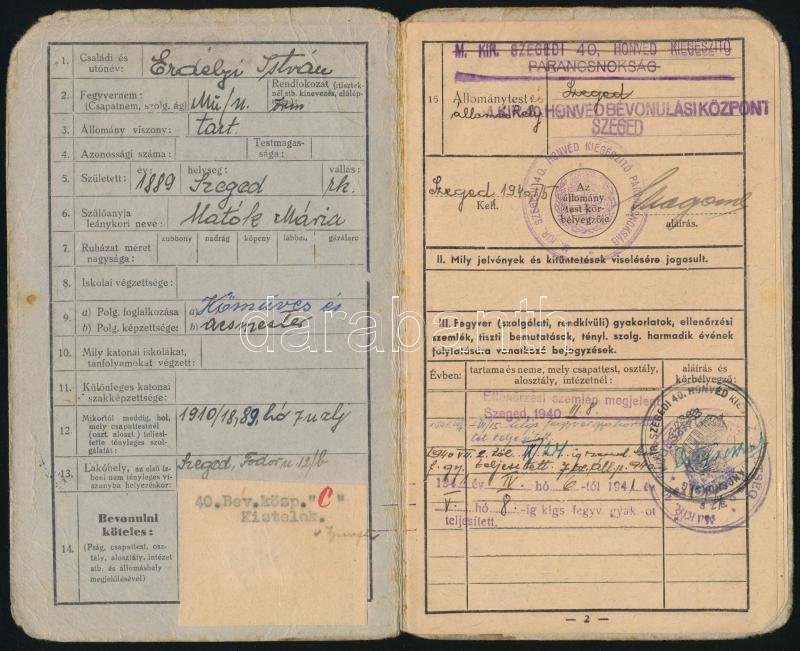 1. Családi és utónév: Erdélyi István
2. Fegyvernem: (Csapatnem, szolg. ág) Mű/n. Rendfokozat (tiszteknél stb. kinevezés, előlép-
3. Állomány viszony: tart.
4. Azonossági száma: Testmagassága:
5. Született: év: 1889 helység: Szeged vallás: rk.
6. Szülőanyja leánykori neve: Matók Mária
7. Ruházat méret nagysága: zubbony nadrág köpeny lábbeli gázálarc
8. Iskolai végzettsége:
9. a) Polg. foglalkozása a) Kőműves és
b) Polg. képzettsége: b) ácsmester
10. Mily katonai iskolákat, tanfolyamokat végzett:
11. Különleges katonai szakképzettsége:
12. Mikortól meddig, hol, mely csapattestnél (oszt. aloszt.) teljesítette tényleges szolgálatát: 1910/18, 89, hó
13. Lakóhely, az első izbeni nem tényleges viszonyba helyezéskor: Szeged, Fodor u 12/b
14. Bevonulni köteles:
(Pság, csapattest, osztály, alosztály, intézet stb. és állomáshely megjelölésével)
40. Bev. közp. "C"
Kistelek.
M. KIR. SZEGEDI 40. HONVÉD KIEGÉSZITŐ
PARANCSNOKSÁG
15 Állománytest és állomáshely Szeged
M. KIR. 40. HONVÉD BEVONULÁSI KÖZPONT
SZEGED
M. KIR. SZEGEDI 40. HONVÉD KIEGÉSZITŐ PARANCSNOKSÁG
Szeged 1940
Kelt.
Az állománytest körbélyegzője
aláírás.
II. Mily jelvények és kitüntetések viselésére jogosult.
III. Fegyver (szolgálati, rendkívüli) gyakorlatok, ellenőrzési
szemlék, tiszti bemutatások, tényl. szolg. harmadik évének
folytatására vonatkozó bejegyzések.
Évben: tartama és neme, mely csapattest, osztály, alosztály, intézetnél: aláírás és körbélyegző:
Ellenőrzési szemlén megjelent
Szeged, 1940 III. 8.
1940 VII. 2. tól
f. gy. teljesített
1941 év IV. hó 6-tól 1941 év
V. hó 8-ig kigs fegyv gyak-ot
teljesített.
M. KIR. SZEGEDI 40. HONVÉD KIE
PARANCSNOKSÁG
— 2 —
darabanth